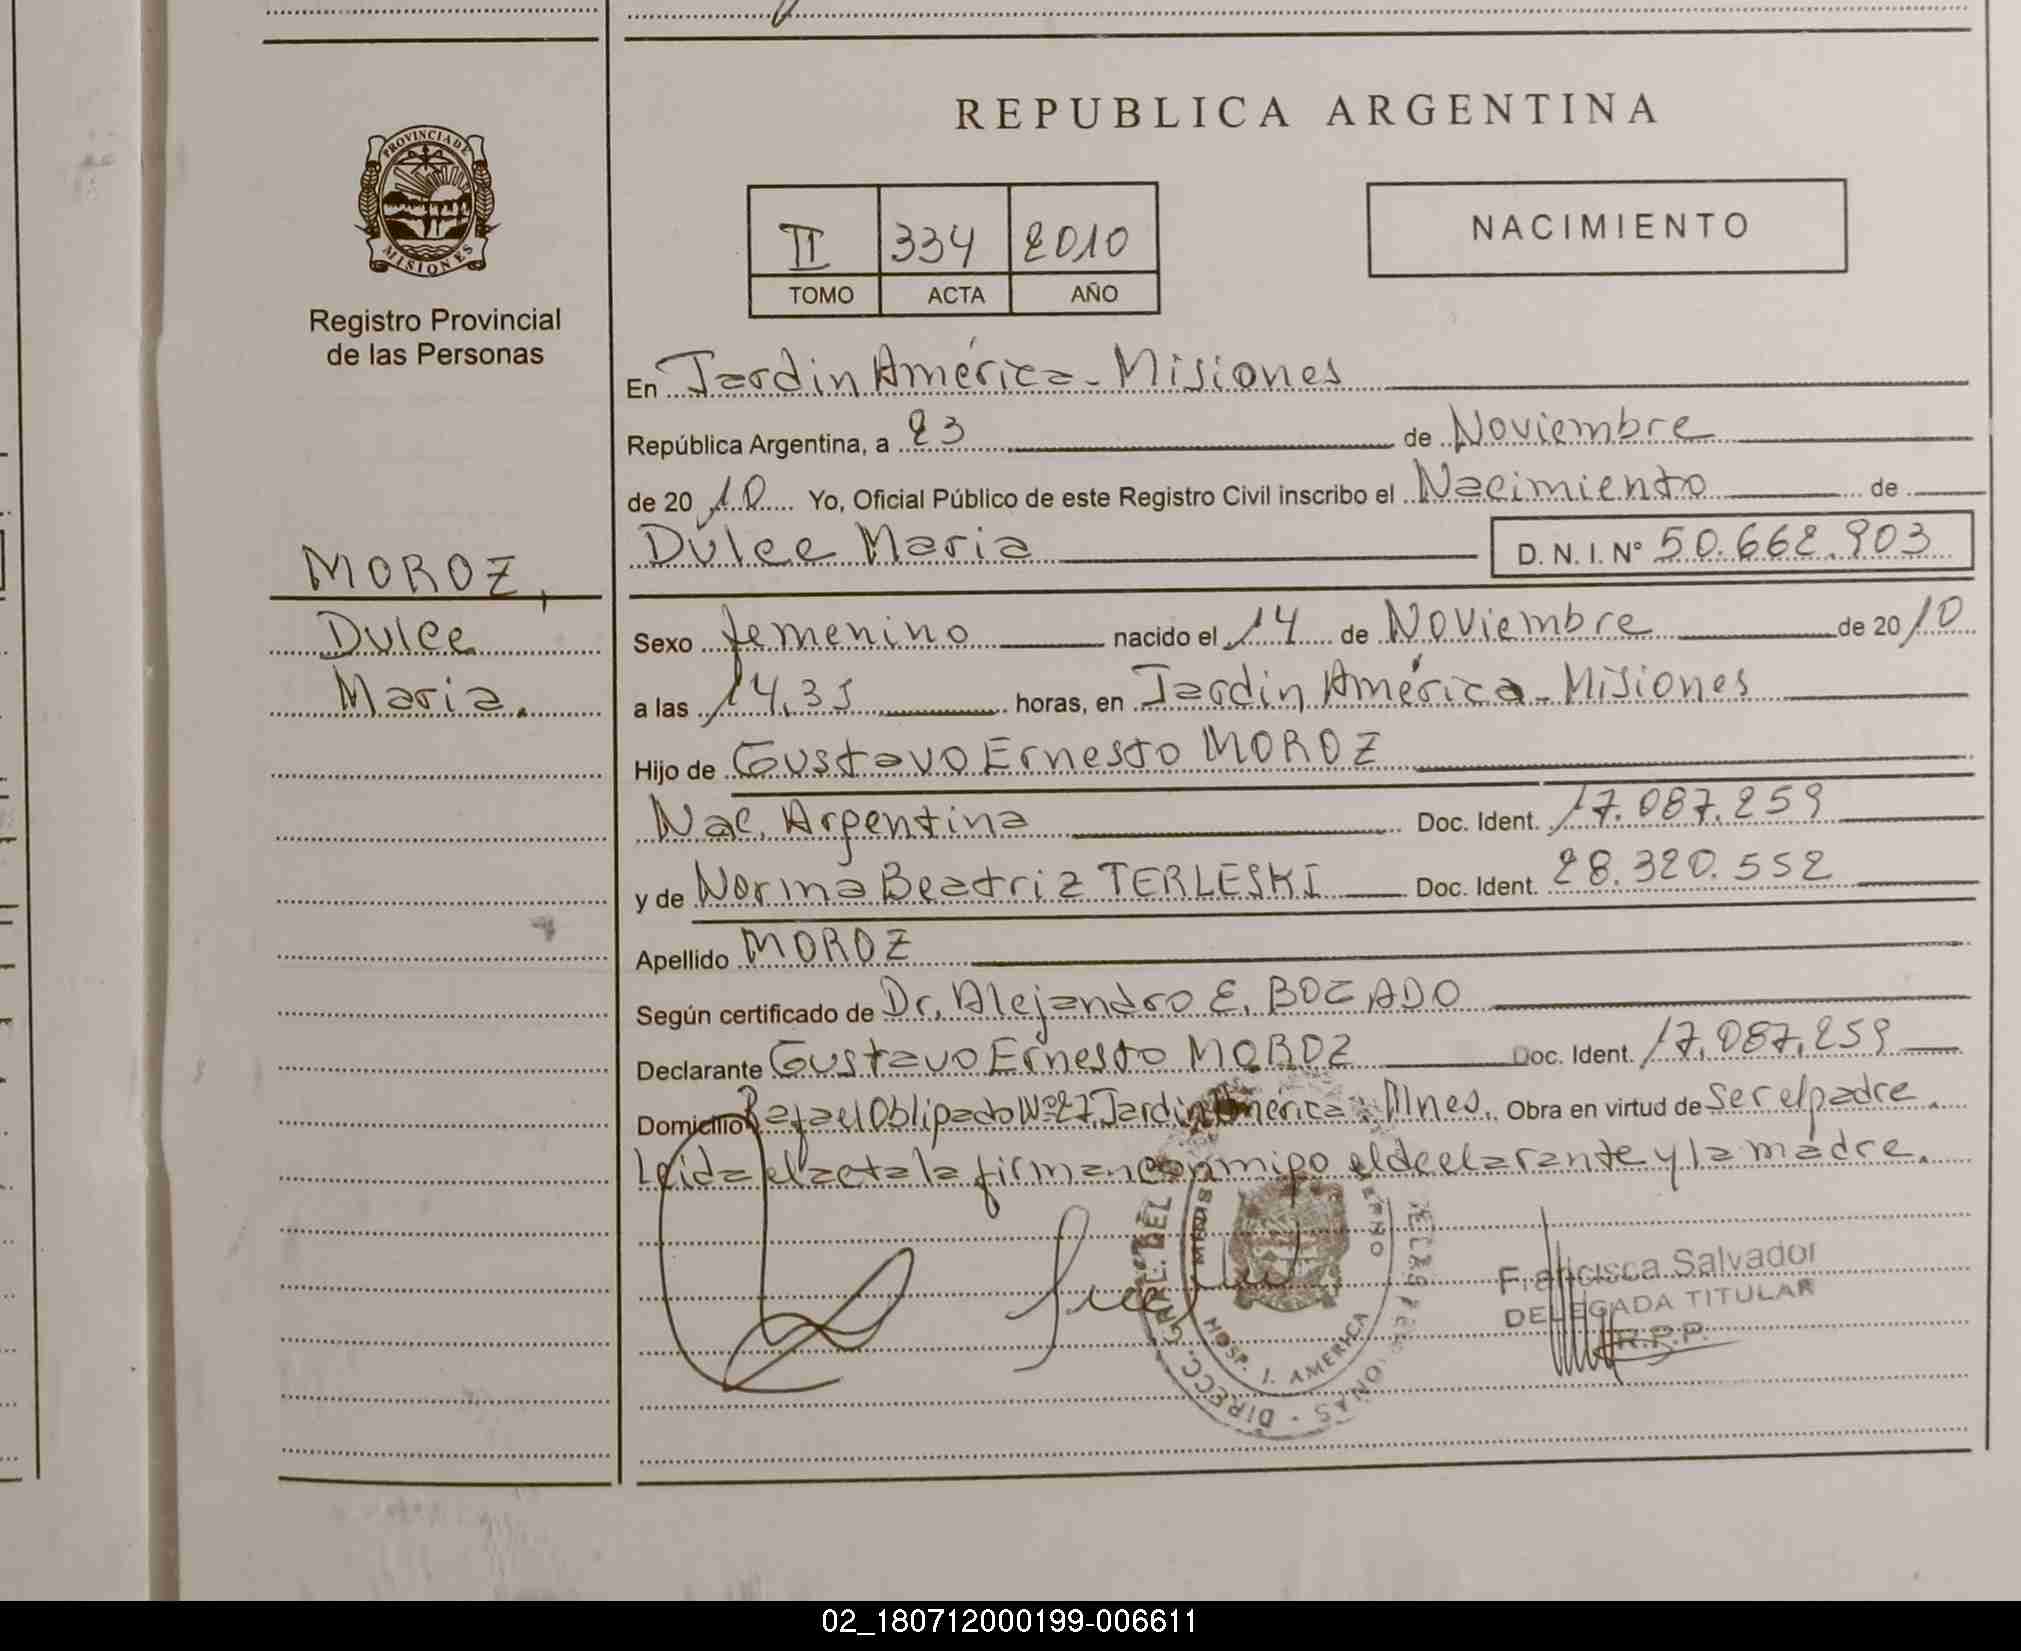 REPUBLICA ARGENTINA
PROVINCIA DE
MISIONES
Registro Provincial
de las Personas
II 334 2010
TOMO ACTA AÑO
NACIMIENTO
En Jardin América - Misiones
República Argentina, a 23 de Noviembre
de 2010 Yo, Oficial Público de este Registro Civil inscribo el Nacimiento de
Dulce Maria D. N. I. Nº 50.662.903
MOROZ,
Dulce
Maria.
Sexo femenino nacido el 14 de Noviembre de 2010
a las 14,35 horas, en Jardin América - Misiones
Hijo de Gustavo Ernesto MOROZ
Nac. Argentina Doc. Ident. 17.087.259
y de Norma Beatriz TERLESKI Doc. Ident. 28.320.552
Apellido MOROZ
Según certificado de Dr. Alejandro E. BOZADO
Declarante Gustavo Ernesto MOROZ Doc. Ident. 17.087.259
Domicilio Rafael Obligado Nº 27, Jardin América - Mnes. Obra en virtud de ser el padre.
Leida el acta la firman conmigo el declarante y la madre.
DIRECC. GRAL. DEL
HOSP. J. AMERICA
Francisca Salvador
DELEGADA TITULAR
R.P.P.
02_180712000199-006611